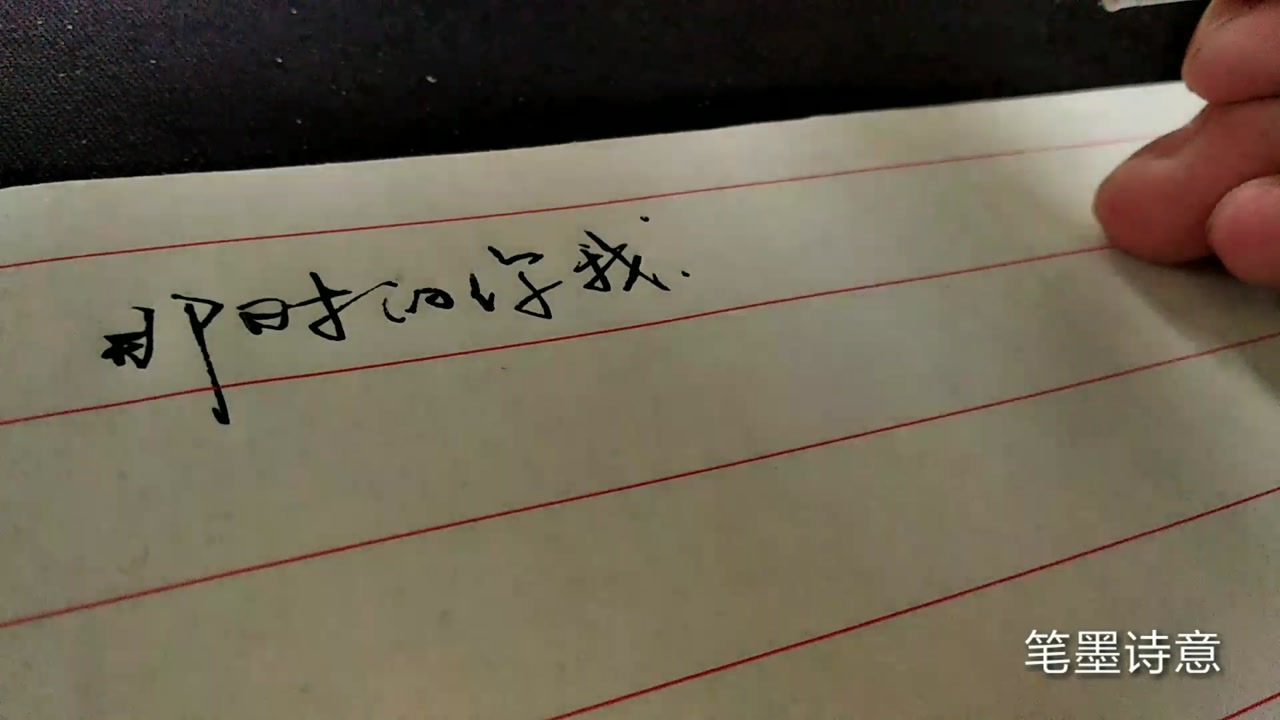 那时的你我.
笔墨诗意